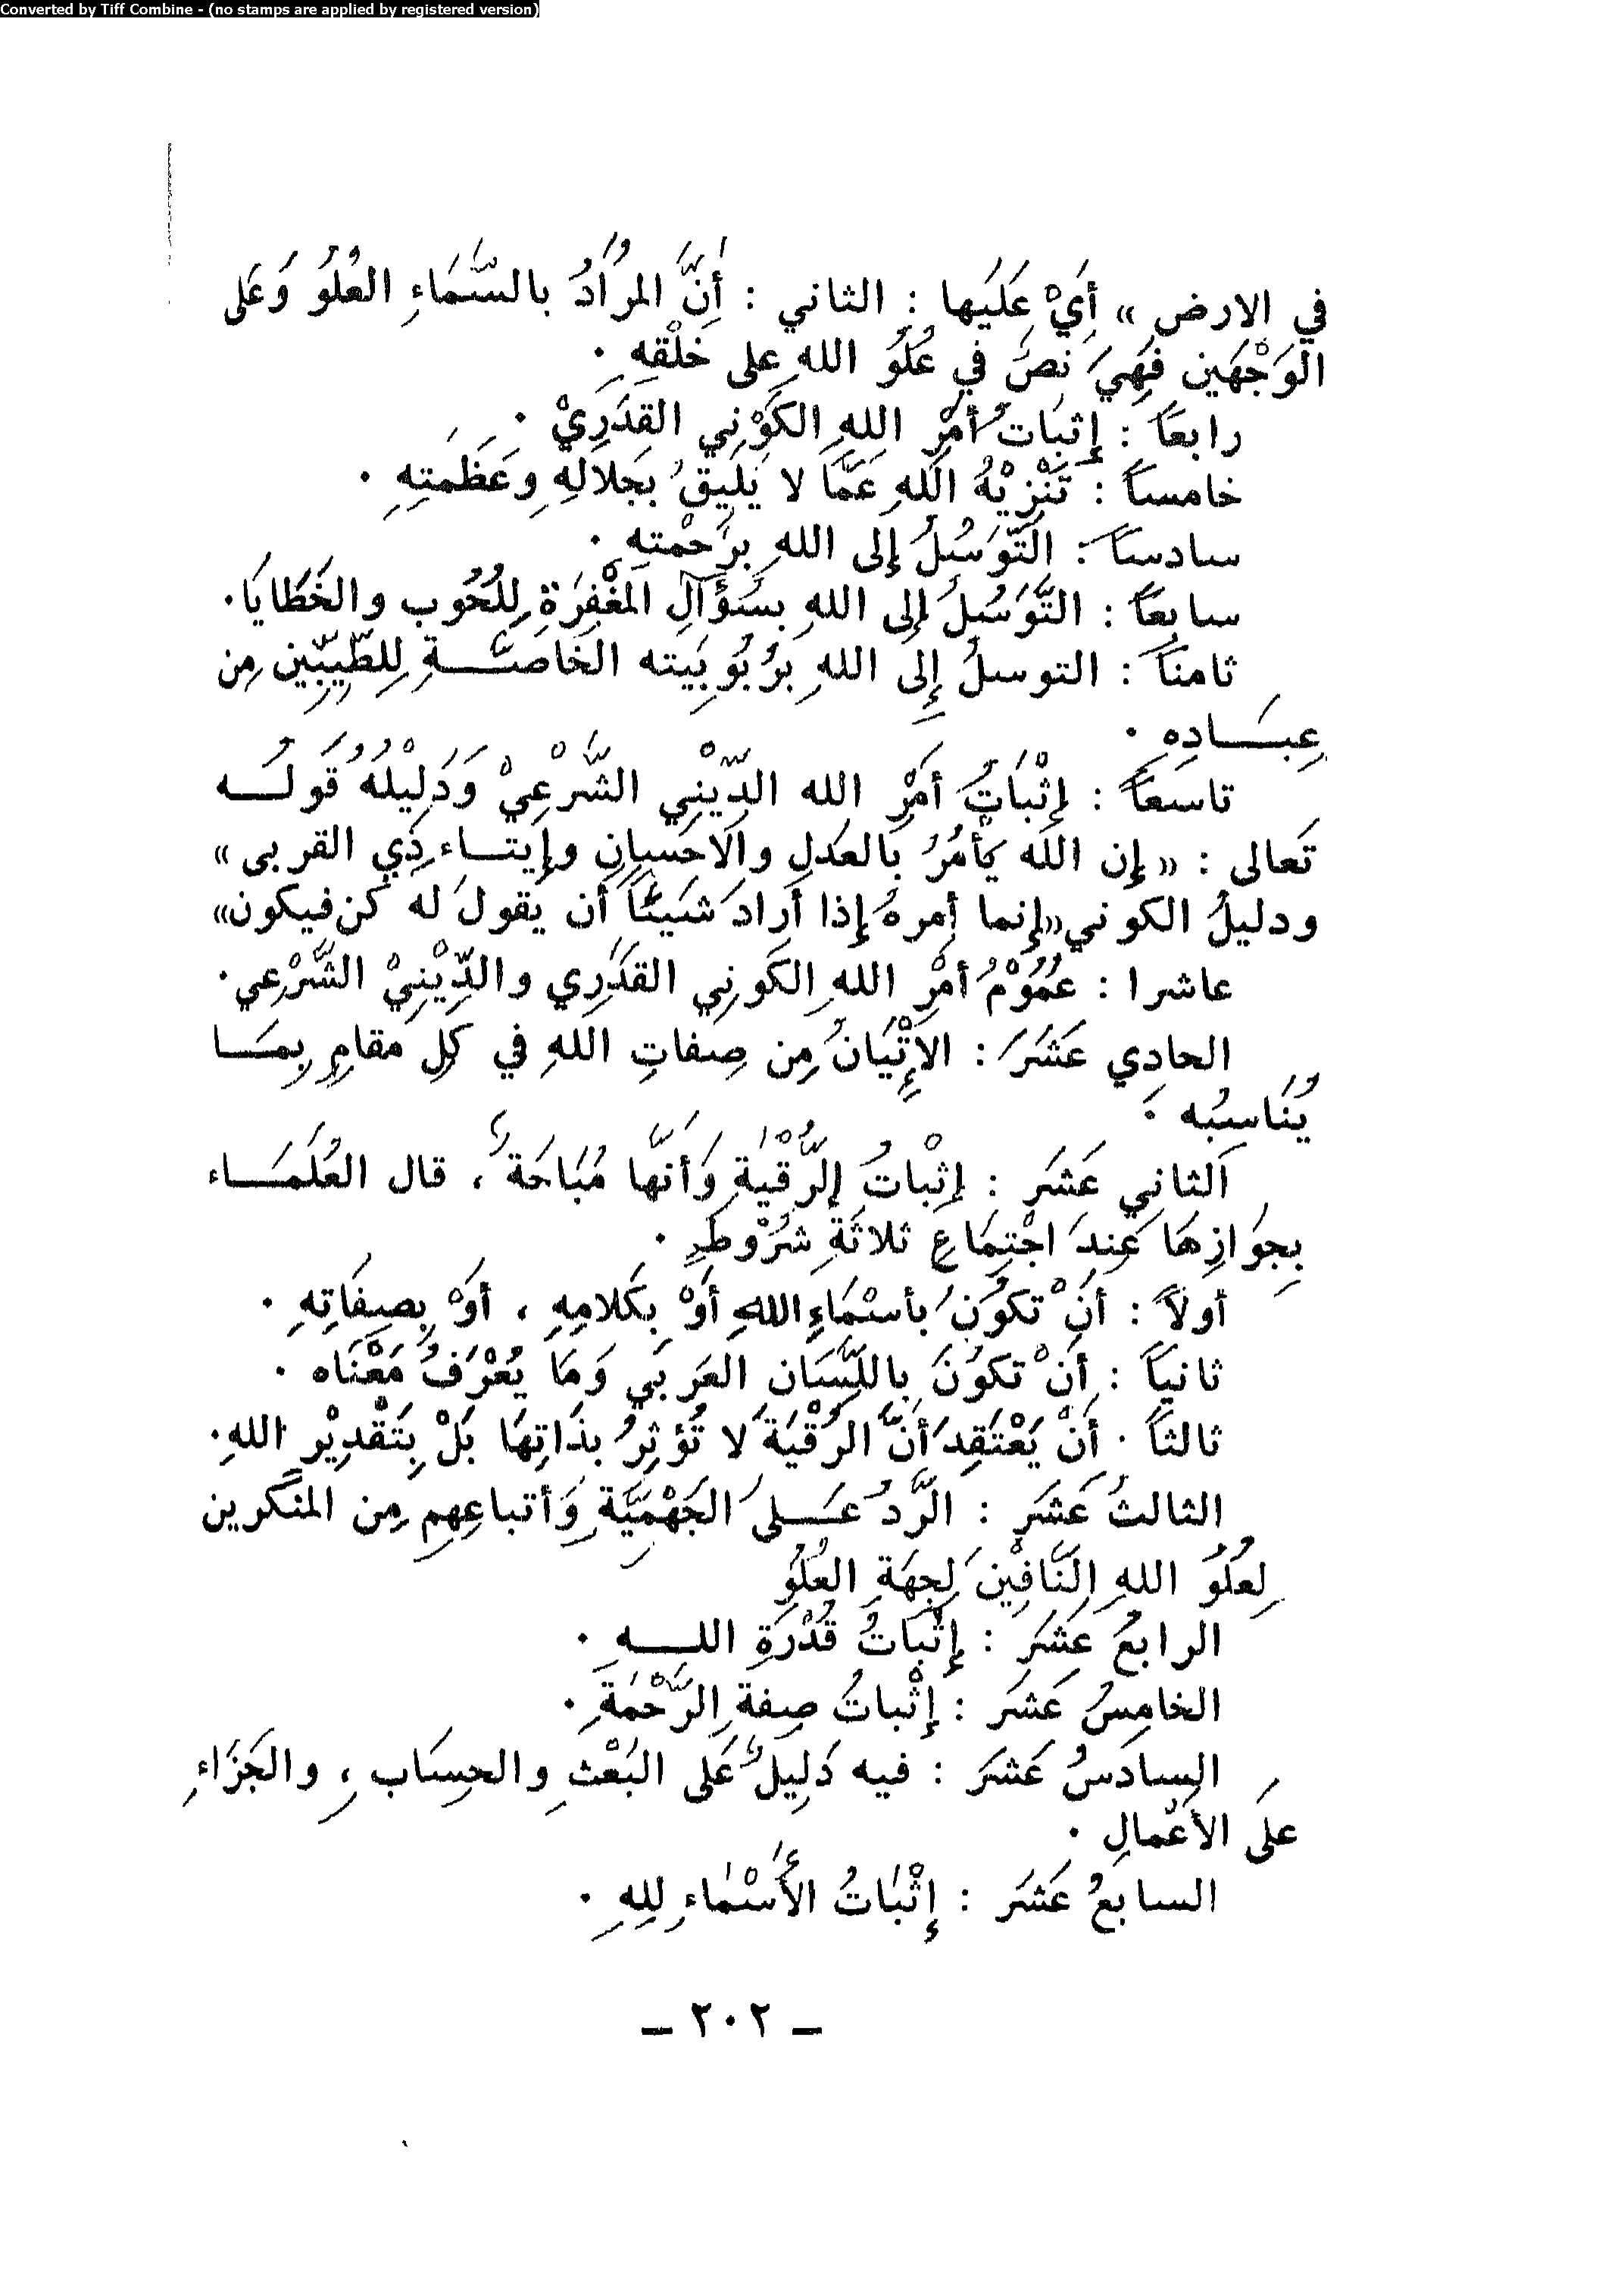 Converted by Tiff Combine - (no stamps are applied by registered version)
في الارض » أَيْ عَلَيها : الثاني : أَنَّ المرُادُ بالسَّمَاءِ العُلُوُ وَعَلى
الوَجْهَين فَهِيَ نصٌ في عُلُوُ اللهِ على خَلْقِهِ .
رابعاً : إِثبَاتُ أَمْرِ اللهِ الكَوْنِي القَدَرِيْ .
خامساً : تَنْزِيْهُ اللهِ عَمَّا لا يَلِيقُ بجَلالِهِ وعَظَمتِهِ .
سادساً : التَّوَسُلُ إِلى اللهِ برَحْمتِهِ .
سابعاً : التَّوَسُلُ إِلى اللهِ بسُؤَآلِ المَغْفِرَةِ لِلْحُوب والخَطَايَا.
ثامناً : التوسلُ إِلَى اللهِ برُبُوبَيته الخَاصَّــةِ لِلطَّيِّبِين مِن
عِبــَـادِهِ .
تاسَعاً : إِثْبَاتُ أَمْرِ الله الدِّيْنِي الشَّرْعِيْ وَدَلِيْلُهُ قَولُــه
تَعالى : « إِن اللهَ يَأْمُرُ بَالعَدلِ والاحَسانِ وإِيتــاءِ ذِي القربى »
ودليلُ الكوني «إِنما أَمرهُ إِذا أَرادَ شَيئاً أَن يقولَ له كن فيكون»
عاشرا : عُمُوْمُ أَمْرِ اللهِ الكَونِي القَدَرِي والدِّيْنِيْ الشَّرْعِي.
الحادِي عَشَرَ : الإِتْيَانُ مِن صِفاتِ اللهِ في كلِ مَقامٍ بِمــَـا
يُنَاسِبُه .
الثاني عَشَر : إِثْبَاتُ الرُّقْيَةِ وَأَنَّها مُبَاحَةٌ ، قال العُلَمَــاء
بِجوَازِهَا عَندَ اجْتِمَاعِ ثلاثَةِ شرُوْطٍ .
أَولاً : أَنْ تكوُنُ بأَسْمَاءِ اللهِ أَوْ بِكَلامِهِ ، أَوْ بِصِفَاتِهِ .
ثانياً : أَنْ تكوُنَ بِاللِّسَان العَرَبَي وَمَا يُعْرَفُ مَعْنَاه .
ثالثاً . أَنْ يَعْتَقِدَ أَنَّ الرُقْيَةَ لا تُؤثِرُ بذَاتِهَا بَلْ بِتَقْدِيْرِ اللهِ.
الثالثُ عَشَر : الرَّدُ عَــلَى الجَهْمِيَّةِ وَأَتباعِهِم مِن المنكَرين
لِعُلُوُ اللهِ النَّافِيْنَ لِجهَةِ العُلُوُ
الرابعُ عَشَر : إِثْبَاتُ قُدْرَةِ اللــهِ .
الخامِسُ عَشَر : إِثْباتُ صِفةِ الرَّحْمَةِ .
السادَسُ عَشَرَ : فيه دَلِيلٌ عَلَى البَعْثِ والحِسَابِ ، والجَزَاءِ
عَلَى الأَعْمالِ .
السابعُ عَشَر : إِثْبَاتُ الأَسْمَاءِ لِلهِ .
ـ ٢٠٢ ـ